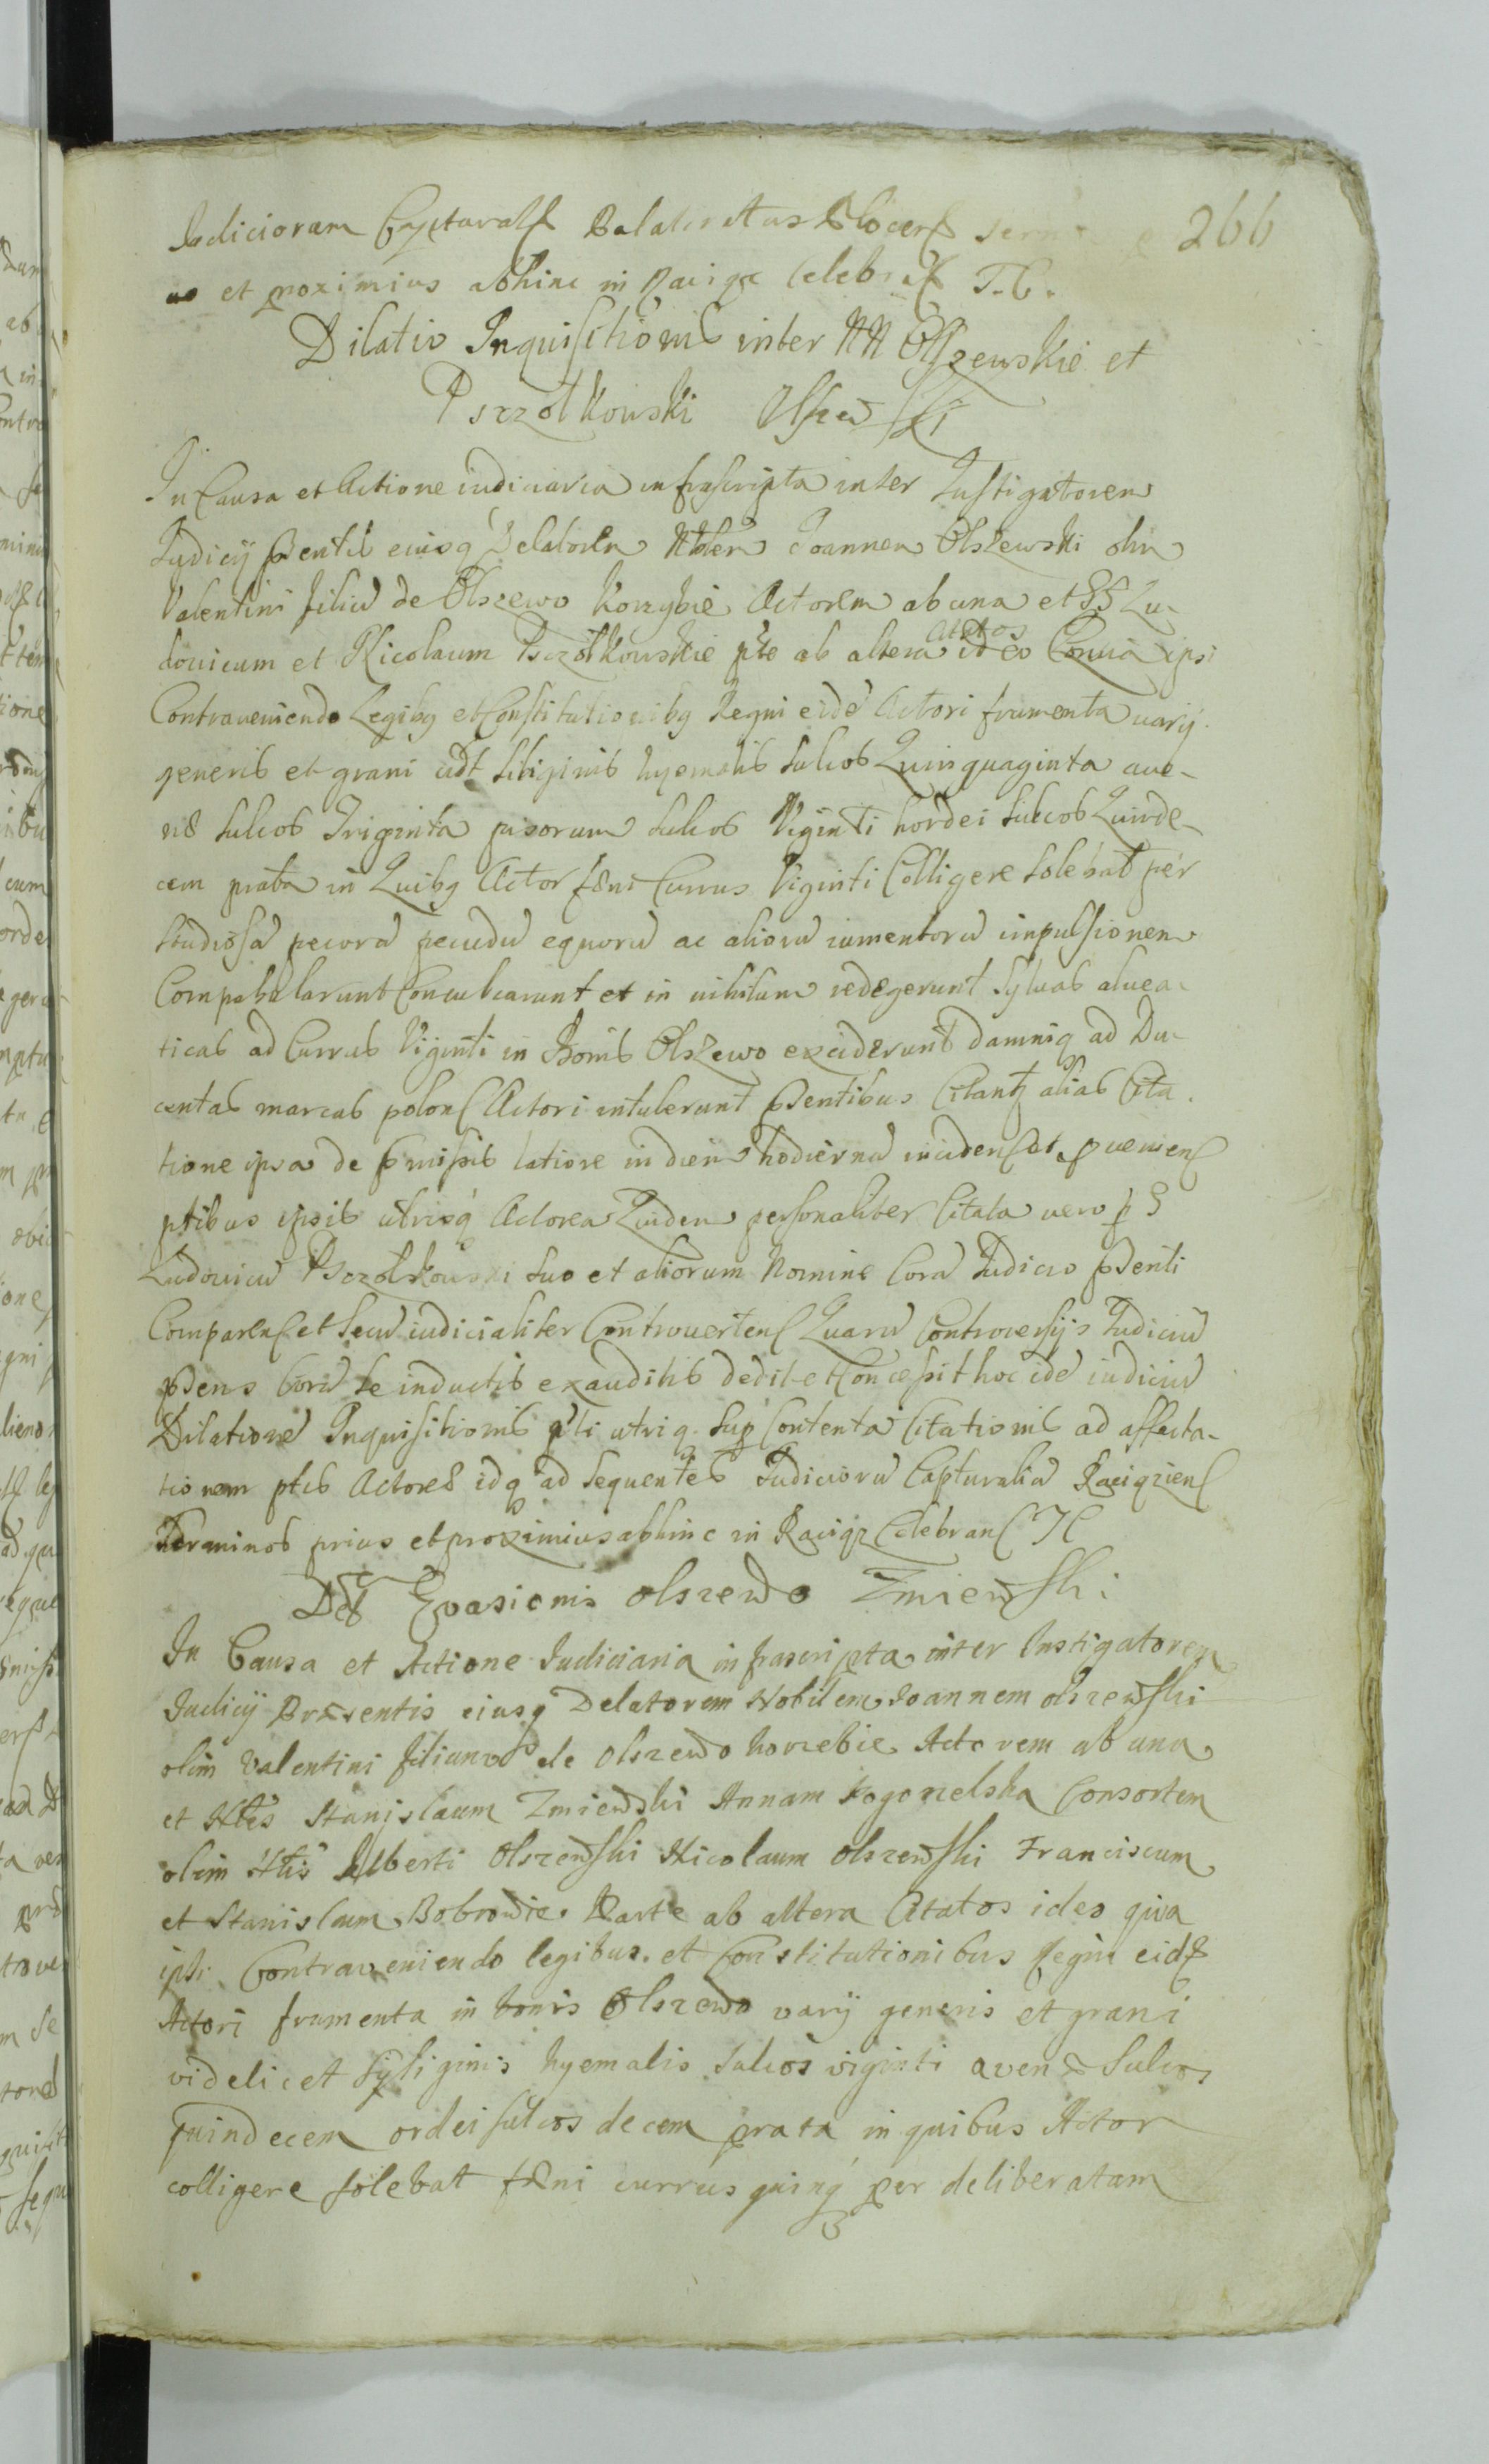 266
Judiciorum Capturaľ Palatinatus Plocens
et proximius abhinc in Raciąż celebraľ T. C.
Dilatio Inquisitionis inter NN Olszewskie et
Pszczołkowski Olszewski
In Causa et Actione iudiciaria infrascripta inter Instigatorem
Judicij pntis eiusq Delatorem Nblem Joannem Olszewski olim
Valentini filiu de Olszewo Korzybie Actorem ab una et GG Lu-
douicum et Nicolaum Psczołkowskie pte ab altera Citatos ideo Quia ipsi
Contraueniendo Legibg et Constitutionibg Regni eide Actori frumenta varij
generis et grani vidt siliginis hyemalis sulcos Quinquaginta aue-
nae sulcos Triginta pisorum sulcos Viginti hordei sulcos Quinde-
cem prata in Quibg Actor faeni Currus Viginti Colligere solebat per
studiosa pecora pecudu equoru ac alioru iumentoru impulsionem
Compabularunt Conculcarunt et in nihilum redegerunt Syluas aluea-
ticas ad Currus Viginti in Bonis Olszewo exciderunt damniq ad Du-
centas marcas polon Actori intulerunt pntibus Citant alias Cita-
tione ipsa de pmissis latiore in diem hodiernu inciden et pueniens
ptibus ipsis utrisq Actorea Quidem personaliter Citata vero p G
Ludouicu Psczołkowski suo et aliorum Nomine Cora Judicio pnti
Comparen et secu iudicialiter Controuerten Quaru Controuersijs Judiciu
pns Cora se inductis exauditis dedit et Concessit hoc ide iudiciu
Dilatione Inquisitionis pti utriq sup Contenta Citationis ad affecta-
tionem ptis Actoreae idq ad sequentes Judicioru Capturaliu Raciązien
Terminos prius et proximius abhinc in Raciąz Celebran TC
Dec Evasionis Olszewo Zmiewski
In Causa et Actione Judiciaria infrascripta inter Instigatorem
Judicij Praesentis eiusq Delatorem Nobilem Joannem Olszewski
olim Valentini filium de Olszewo korzebie Actorem ab una
et Nles Stanislaum Zmiewski Annam Pogorzelska Consortem
olim Nlis Alberti Olszewski Nicolaum Olszewski Franciscum
et Stanislaum Bobrowie Parte ab altera Citatos ideo quia
ipsi Contraveniendo legibus et Constitutionibus Regni eid
Actori frumenta in bonis Olszewo varij generis et grani
videlicet syliginis hyemalis sulcos viginti avenae sulcos
quindecem ordei sulcos decem prata in quibus Actor
colligere solebat faeni currus quinq per deliberatam